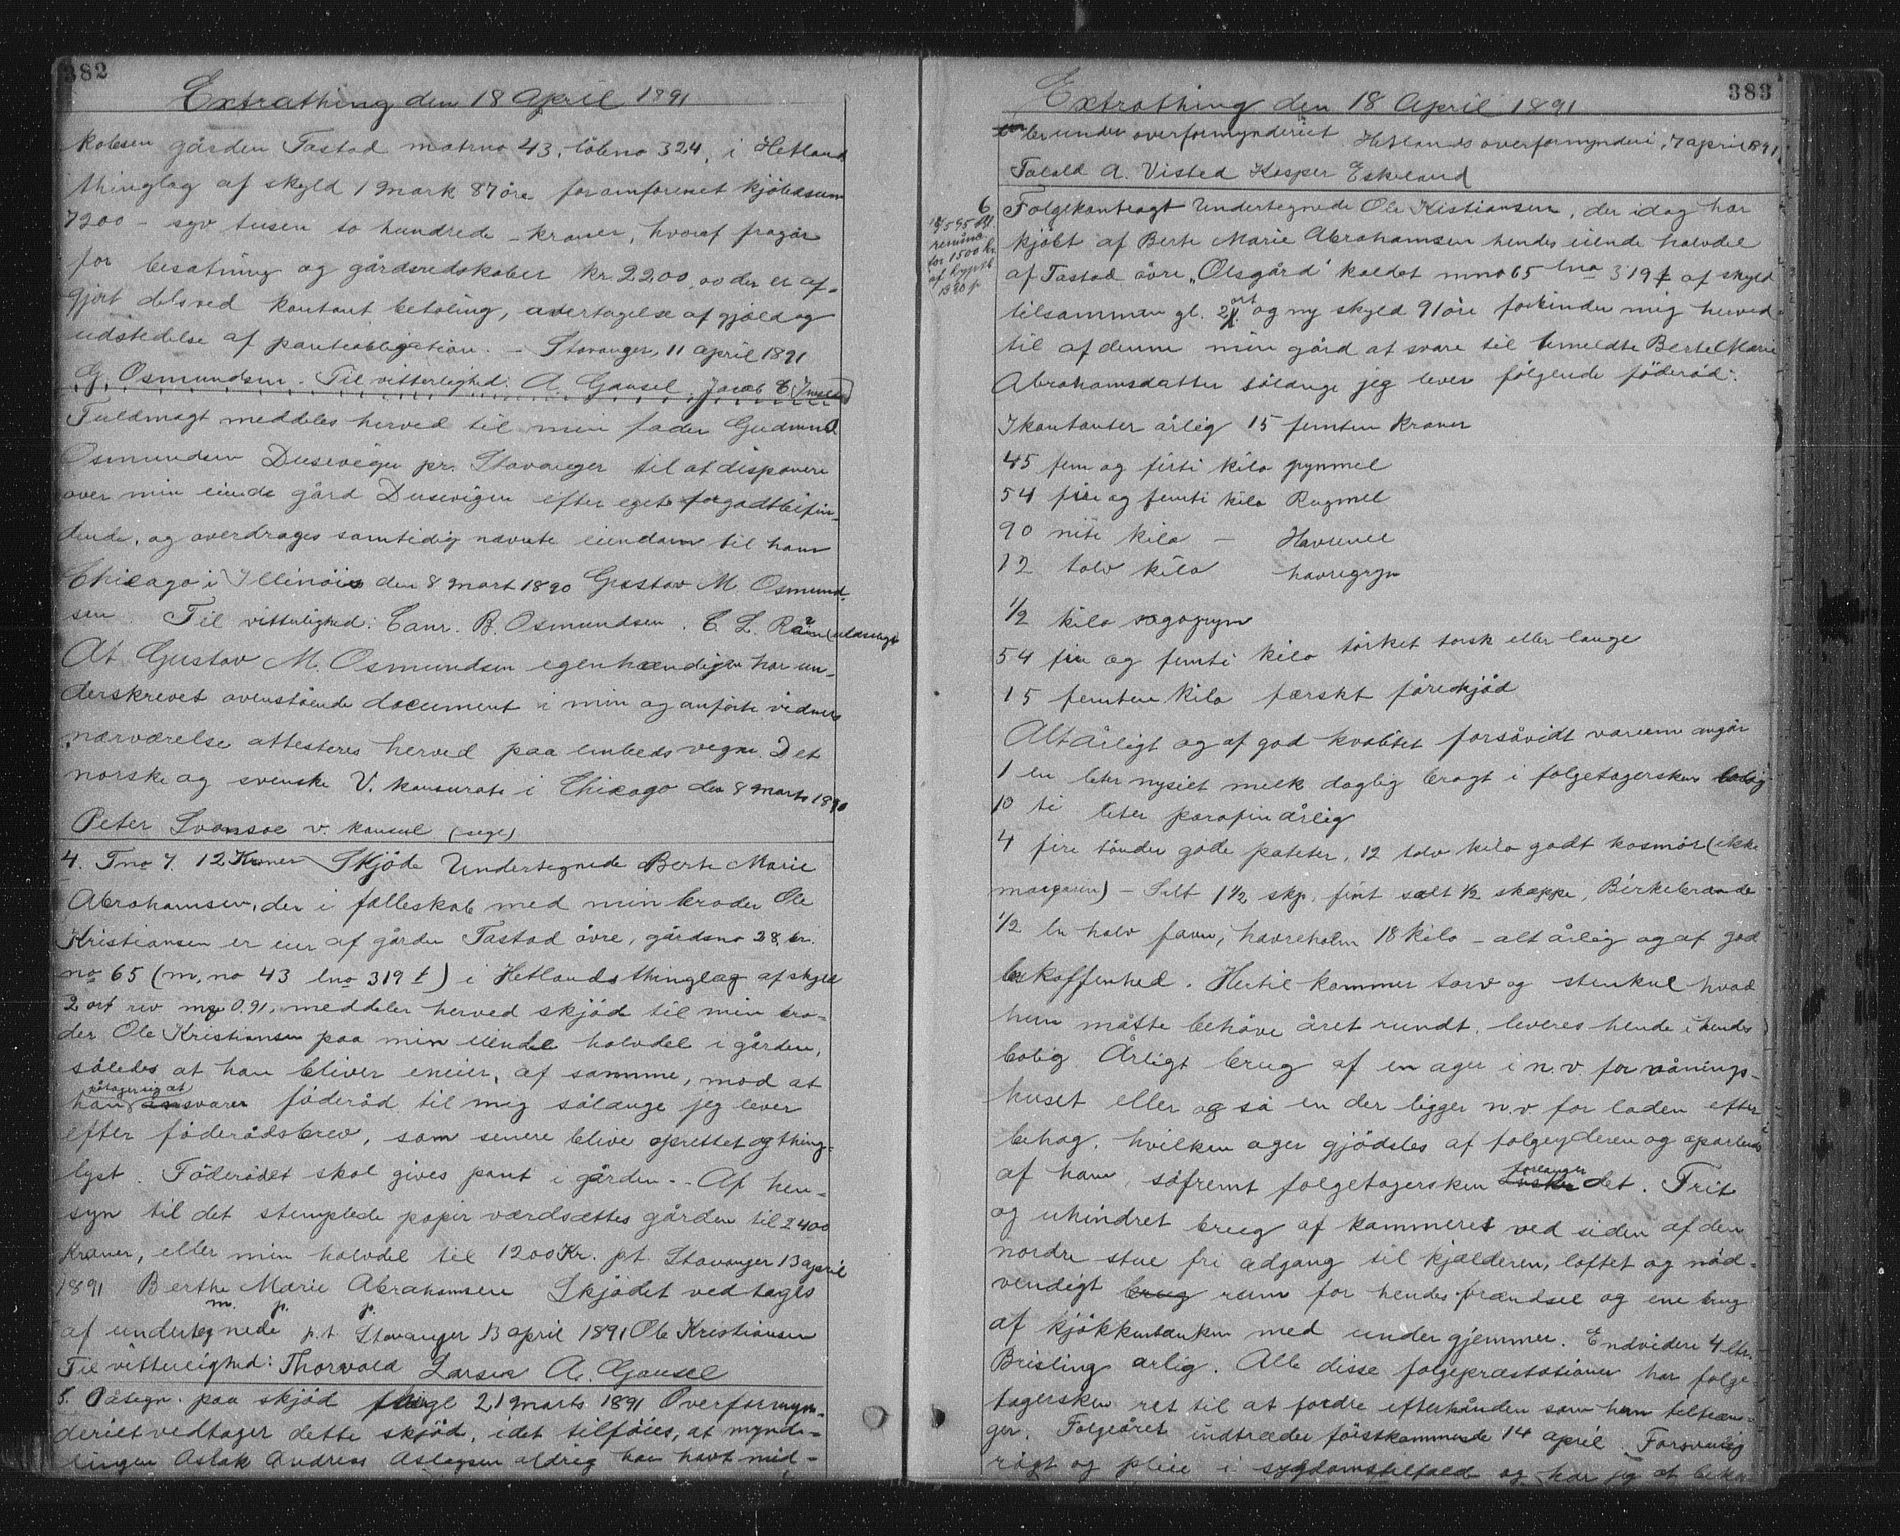 382
Extrathing den 18 April 1891
kobsen gården Tastad matrno 43, löbno 324, i Hetland
thinglag af skyld 1 mark 87 öre for omforenet kjöbesum
7200 – syv tusen to hundrede – kroner, hvoraf fragår
for besætning og gårdsredskaber kr. 2200,00 der er af-
gjort dels ved kontant betaling, overtagelse af gjæld og
udstedelse af panteobligation. – Stavanger, 11 april 1891
G. Osmundsen. Til vitterlighed: A. Gausel, Jacob
Fuldmagt meddeles herved til min fader Gudmund
Osmundsen Dusevigen pr. Stavanger til at disponere
over min eiende gård Dusevigen efter eget forgodtbefin-
dende, og overdrages samtidig nævnte eiendom til ham
Chicago i Illinois den 8 Mart 1890 Gustav M. Osmund-
sen. Til vitterlighed: B. Osmundsen. C. L.
At Gustav M. Osmundsen egenhændigen har un-
derskrevet ovenstående document i min og anførte vidners
nærværelse attesteres herved paa embeds vegne. Det
norske og svenske V. konsurate i Chicago den 8 marts 1890
Peter Svansoe v. konsul (segl)
4. Tno 7. 12 Kroner Skjöde Undertegnede Berte Marie
Abrahamsen, der i fælleskab med min broder Ole
Kristiansen er eier af gården Tastad övre, gårdsno 28, br.
no 65 (m. no 43 lno 319 f) i Hetlands thinglag af skyld
2 ort rev my 0.91, meddeler herved skjöd til min bro-
der Ole Kristiansen paa min eiende halvdel i gården,
således at han bliver eneier, af samme, mod at
påtager sig at
han svarer föderåd til mig sålænge jeg lever
efter föderådsbrev, som senere blive oprettet og thing-
lyst. Föderådet skal gives pant i gården. – Af hen-
syn til det stemplede papir værdsættes gården til 2400
Kroner, eller min halvdel til 1200 Kr. pt Stavanger 13 april
1891 Berthe Marie Abrahamsen Skjödet vedtages
m. p. p.
af undertegnede p.t Stavanger 13 april 1891 Ole Kristiansen
Til vitterlighed: Thorvald Larsen A. Gausel
5. Påtegn. paa skjöd 21 marts 1891 Overformyn-
deriet vedtager dette skjöd, idet tilföies, at mynd-
lingen Aslak Andreas Aslagsen aldrig har havt mid-
383
Extrathing den 18 April 1891
ler under overformynderiet. Hetlands overformynderi, 7 april 1891
Tolald A. Visted Kasper Eskeland
6 Folgekontragt Undertegnede Ole Kistiansen, der idag har
kjöbt af Berte Marie Abrahamsen hendes eiende halvdel
af Tastad övre „Olsgård" kaldet mno 65 lno 319 f af skyld
tilsammen gl. 2 ort og ny skyld 91 öre forbinder mig herved
til af denne min gård at svare til bemeldte Berte Marie
Abrahamsdatter sålænge jeg lever fölgende föderåd:
I kontanter årlig 15 femten Kroner
45 fem og firti kilo gynmel
54 fire og femti kilo Rugmel
90 niti kilo – Havremel
12 tolv kilo havregryn
1/2 kilo sagogryn
54 fire og femti kilo törket torsk eller lange
15 femten kilo færskt fårekjöd
Alt årligt og af god kvalitet forsåvidt varerne angår
1 en liter nysiet melk daglig bragt i folgetagerskens bolig
10 ti liter parafin årlig
4 fire tönder gode poteter, 12 tolv kilo godt kosmör (ikke
margarin) – Salt 1 1/2 skp, fint salt 1/2 skæppe, Birkebrænde
1/2 en halv favn, havrehalm 18 kilo – alt årlig og af god
beskaffenhed. Hertil kommer torv og stenkul hvad
hun måtte behöve året rundt, leveres hende i hendes
bolig. Årligt brug af en ager i n.v. for vånings-
huset eller også en der ligger n.v for laden efter
behag, hvilken ager gjödsles af folgeyderen og oparbeides
af ham, såfremt folgetagersken forlanger det. Frit
og uhindret brug af kammeret ved siden af den
nordre stue fri adgang til kjælderen, loftet og nöd-
vendigt rum for hendes brændsel og ene brug
af kjökkenbænken med under gjemmer. Endvidere 4 ltr.
Brisling årlig. Alle disse folgepræstationer har folge-
tagersken ret til at fordre efterhånden som hun tiltræn-
ger. Folgeåret indtræder förstkommende 14 april. Forsvarlig
rögt og pleie i sygdomstilfælde og har jeg at beko